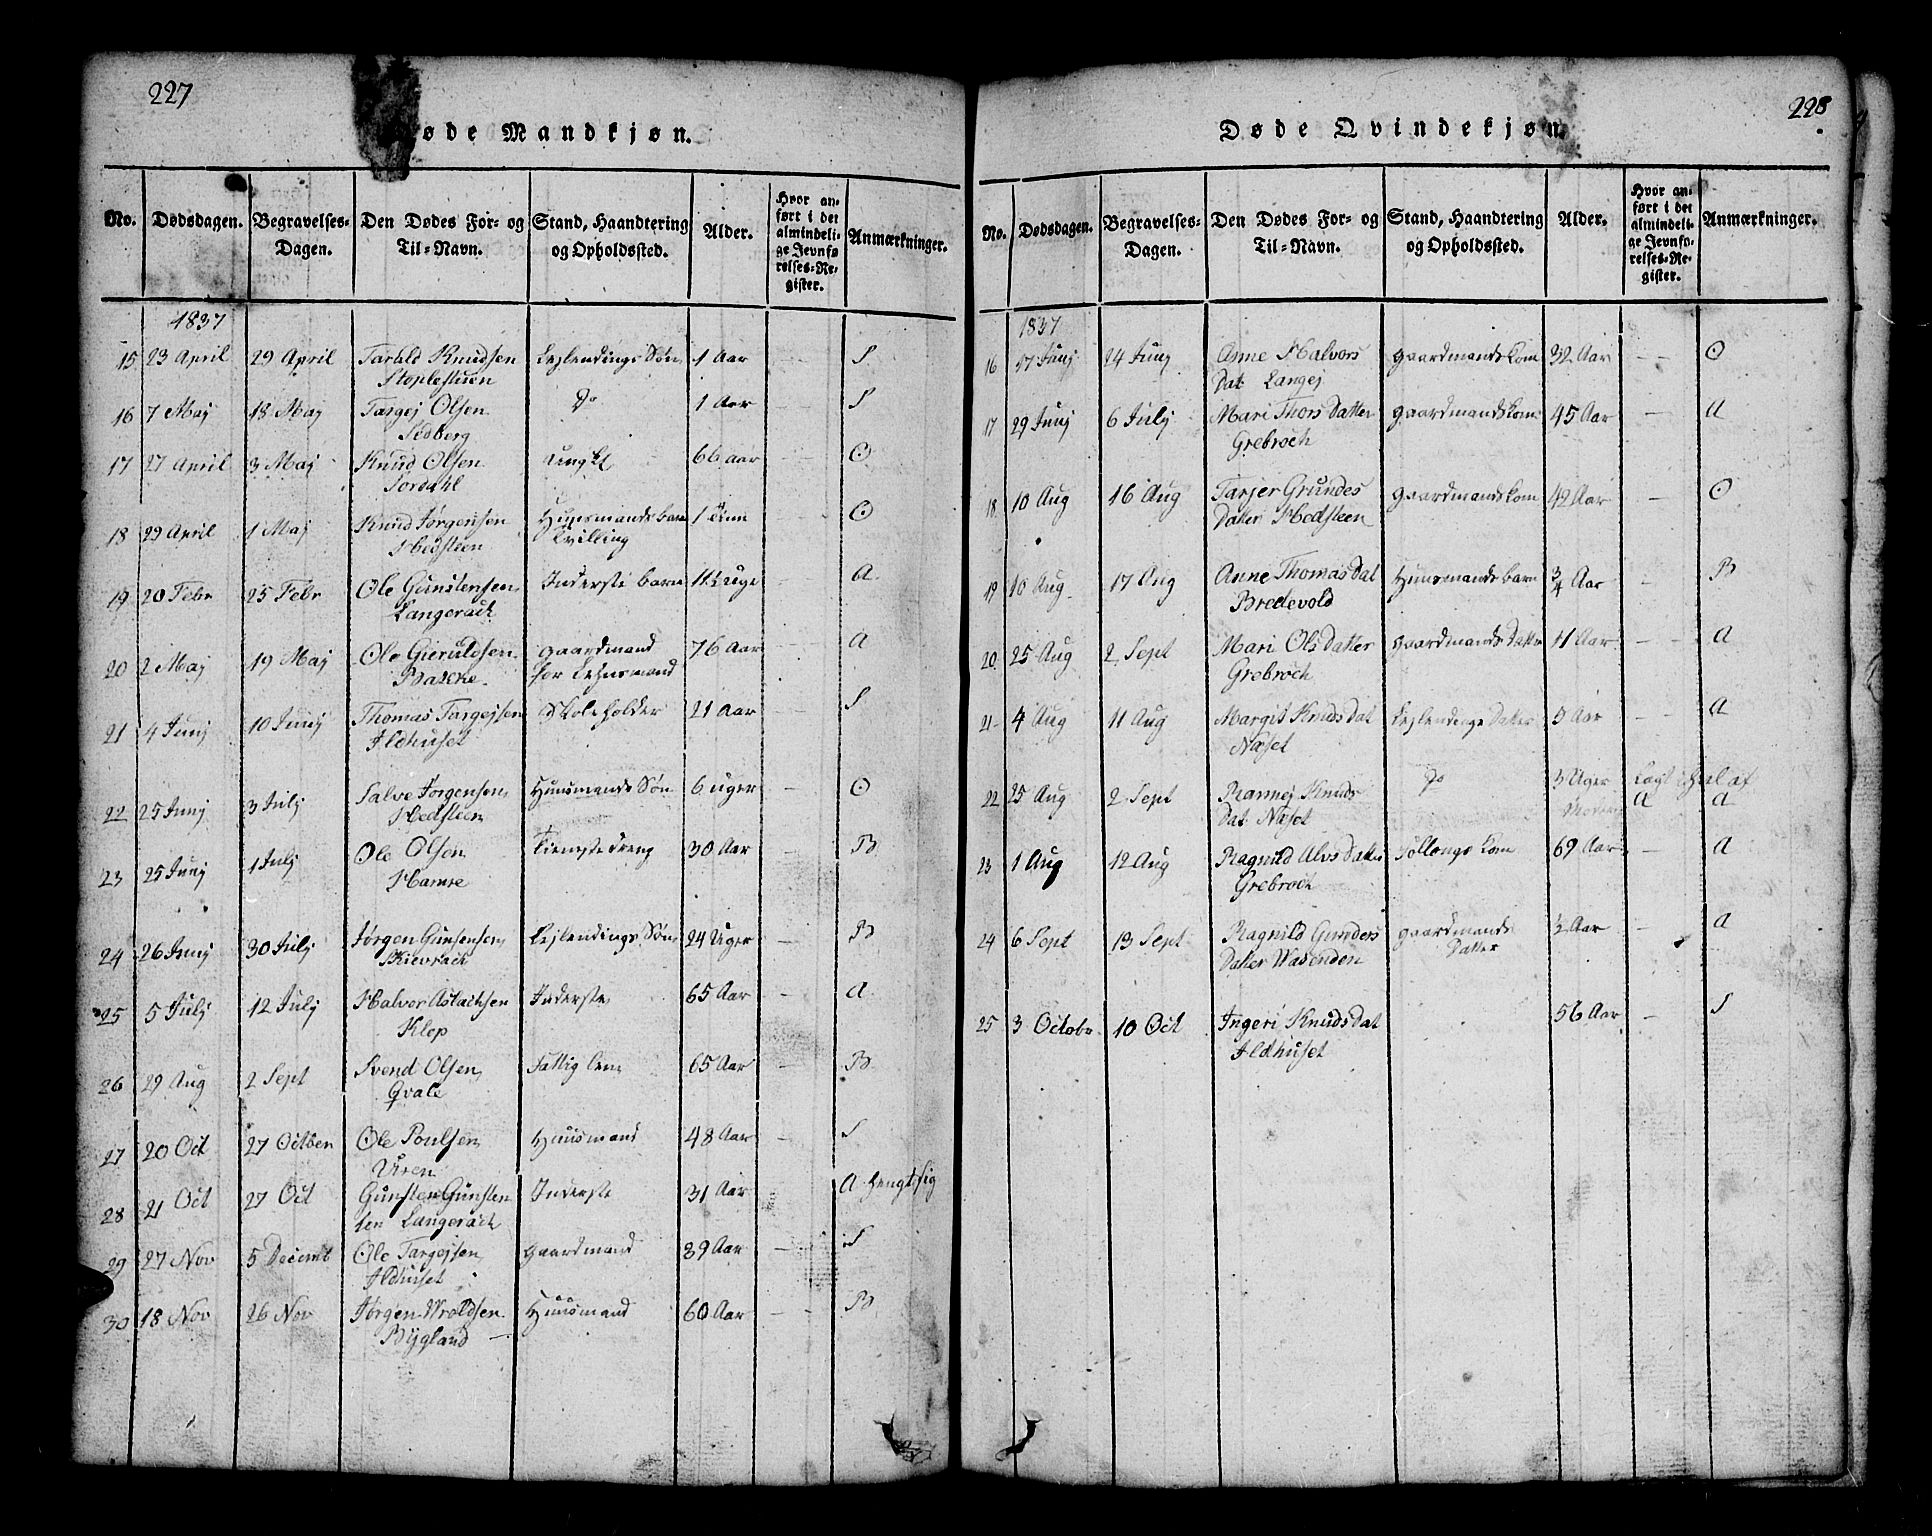 227
Døde Mandkjøn.
No. Dødsdagen. Begravelses-Dagen. Den Dødes For- og Til-Navn. Stand, Haandtering og Opholdssted. Alder. Hvor anført i det almindelige Jevnførelses-Register. Anmærkninger.
1837
15 23 April 29 April Tarald Knudsen Lejlendings Søn 1 Aar — S
Stoplestuen
16 7 Maj 18 Maj Targej Olsen Do 1 Aar — S
Sedberg
17 27 April 3 Maj Knud Olsen 66 aar — O
Jordahl
18 29 April 1 Maj Knud Jørgensen Huusmands barn 1 — O
Medsteen Tvilling
19 20 Febr 25 Febr Ole Gunstensen Inderste barn — A
Langerack
20 2 Maj 19 Maj Ole Gieruldsen gaardmand 76 Aar — A
for Lehnsmand
21 4 Junj 10 Junj Thomas Targejsen Skoleholder 21 Aar — S
Ildhuset
22 25 Junj 3 Julj Salve Jørgensen Huusmands Søn 6 uger — O
Medsteen
23 25 Junj 1 Julj Ole Olsen Tienstedreng 30 Aar — B
Hamre
24 26 Junj 30 Julj Jørgen Gunsensen Lejlendings Søn 24 Uger — B
Skievrack
25 5 Julj 12 Julj Halvor Aslachsen Inderste 65 Aar — A
Klep
26 29 Aug 2 Sept Svend Olsen Fattig lem 65 Aar — B
Qvale
27 20 Oct 27 Octber Ole Poulsen Huusmand 48 Aar — S
Viren
28 21 Oct 27 Oct Gunsten Gunsten Inderste 31 Aar — A hengt sig
sen Langerack
29 27 Nov 5 Decemb Ole Targejsen gaardmand 89 Aar — S
Ildhuset
30 18 Nov 26 Nov Jørgen Wroldsen Huusmand 60 Aar — B
Bygland
228
Døde Qvindekjøn.
No. Dødsdagen. Begravelses-Dagen. Den Dødes For- og Til-Navn. Stand, Haandtering og Opholdssted. Alder. Hvor anført i det almindelige Jevnførelses-Register. Anmærkninger.
1837
16 17 Junj 24 Junj Anne Halvors gaardmands kom 32 Aar — O
Dat Langej
17 29 Junj 6 Julj Mari Thors Datter gaardmands kone 45 Aar — A
Grebroch
18 10 Aug 16 Aug Tarjer Grundes gaardmands kom 42 Aar — O
Datter Medsteen
19 10 Aug 17 Aug Anne Thomas Dat Huusmands barn 3/4 Aar — B
Bredevold
20 25 Aug 2 Sept Mari Ols Datter gaardmands Datter 11 Aar — A
Grebroch
21 4 Aug 11 Aug Margit Knuds Dat Lejlendings Datter 3 Aar — A
Næset
22 25 Aug 2 Sept Rannej Knuds Do 3 Uger Lagt ihjel af
Dat Næset Moderen A A
23 1 Aug 12 Aug Ragnild Alvs Datter kom 69 Aar — A
Grebroch
24 6 Sept 13 Sept Ragnild Gunders gaardmands 1/2 Aar — A
Datter Wasenden Datter
25 3 Octobr 10 Oct Ingeri Knuds Dat 56 Aar — S
Ildhuset